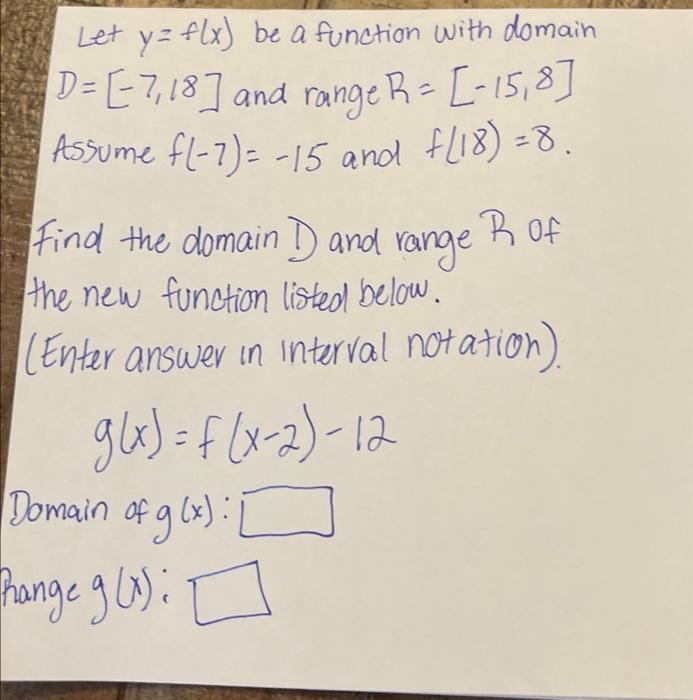 Let y = f(x) be a function with domain
D = [-7,18] and range R = [-15,8]
Assume f(-7) = -15 and f(18) = 8.
Find the domain D and range R of
the new function listed below.
(Enter answer in interval notation).
g(x) = f(x-2) - 12
Domain of g(x):
Range g(x):